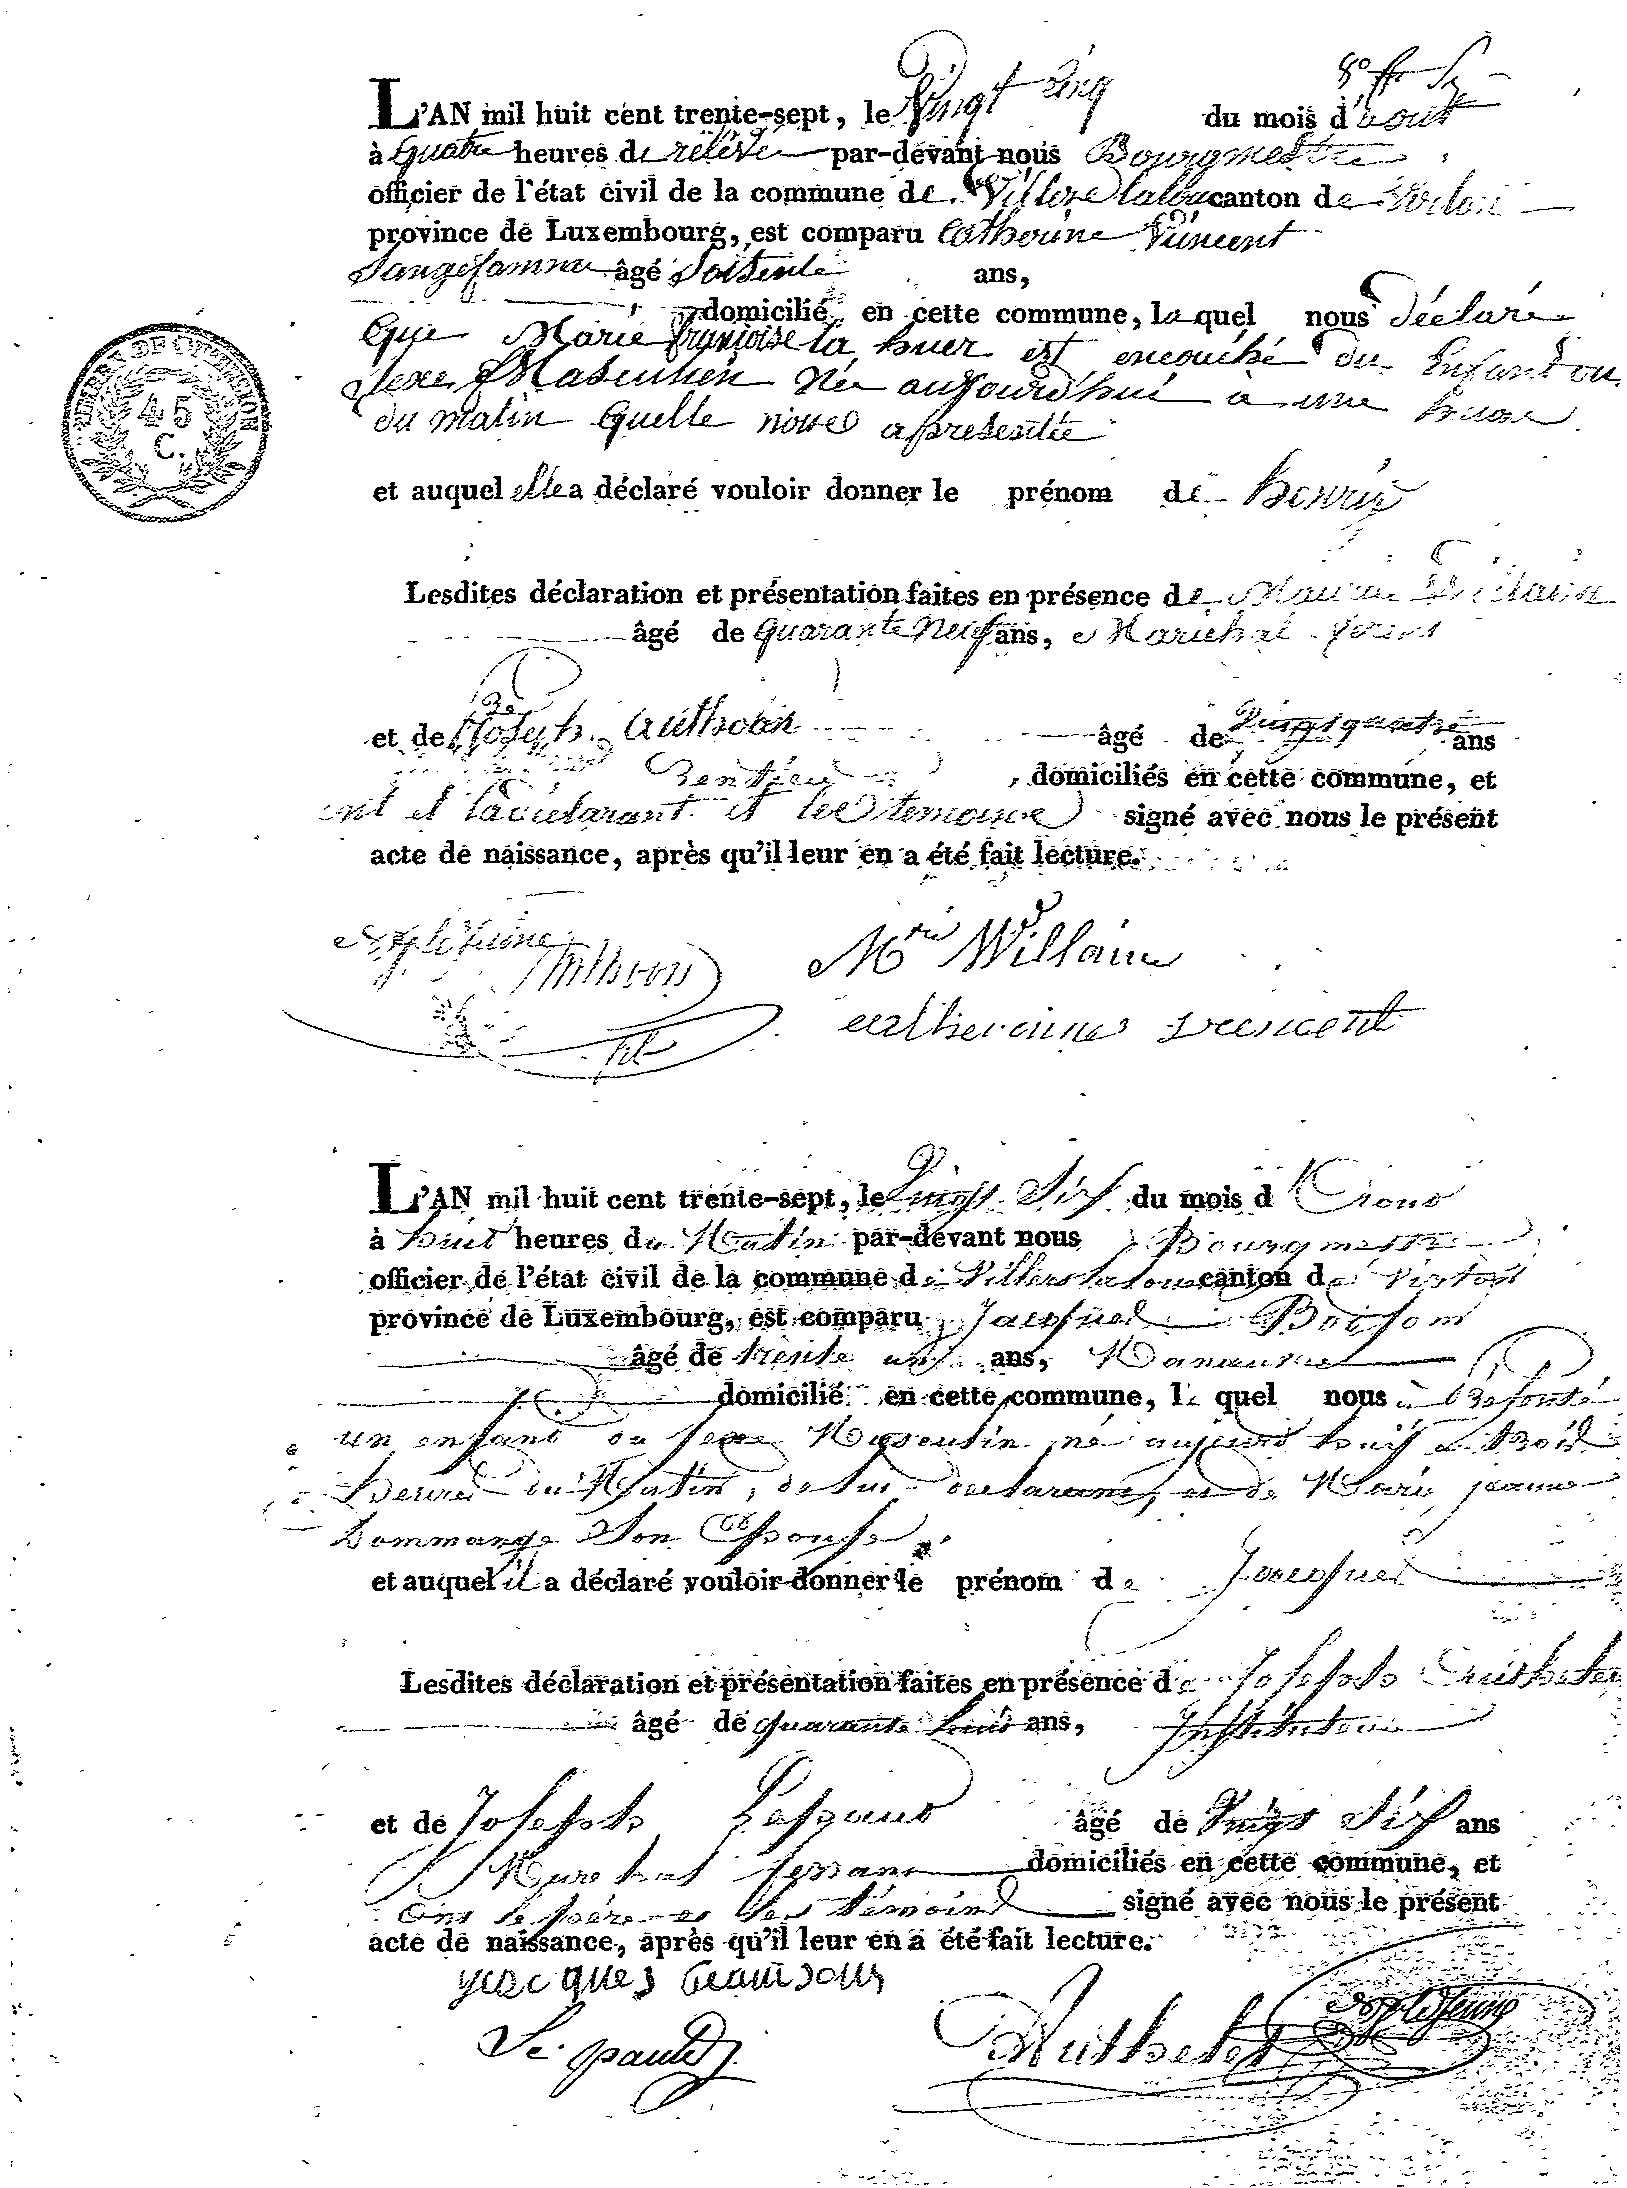 L'AN mil huit cent trente-sept, le Vingt Cinq du mois d'Aout
à Quatre heures de relevée par-devant nous Bourgmestre
officier de l'état civil de la commune de canton de
province de Luxembourg, est comparu Catherine Vincent
âgé Soisente ans,
domicilié en cette commune, la quel nous déclaré
que Marie françoise la huer est encouché du Enfant du
sexe Masculien née aujourd'hui à une heure
du matin quelle nous a presentée
et auquel elle a déclaré vouloir donner le prénom de henry
Lesdites déclaration et présentation faites en présence de Willaim
âgé de quarante Neuf ans, Marichal
et de Joseph authoen âgé de Vingt quatre ans
Rentier, domiciliés en cette commune, et
ont et la déclarant et les temoins signé avec nous le présent
acte de naissance, après qu'il leur en a été fait lecture.
Mrie Willaim
catherinne vincent
TIMBRE DE DIMENSION
45
C.
L'AN mil huit cent trente-sept, le Vingt Six du mois d'Aout
à huit heures du Matin par-devant nous Bourgmestre
officier de l'état civil de la commune de Villers la loue canton de Virton
province de Luxembourg, est comparu Jacques
âgé de trente un ans, Manœuvre
domicilié en cette commune, le quel nous à Présenté
un enfant du sexe Masculin né aujourd'huis à trois
heures du Matin, de lui déclarant, et de Marie jeanne
hommange Son Epouse
et auquel il a déclaré vouloir donner le prénom de Jacques
Lesdites déclaration et présentation faites en présence de Joseph Authelet
âgé de quarante huit ans, Instituteur
et de Joseph Lepaud âgé de Vingt Six ans
Marechal ferrant domiciliés en cette commune, et
Ont le père et les témoins signé avec nous le présent
acte de naissance, après qu'il leur en a été fait lecture.
jacques
Authelet